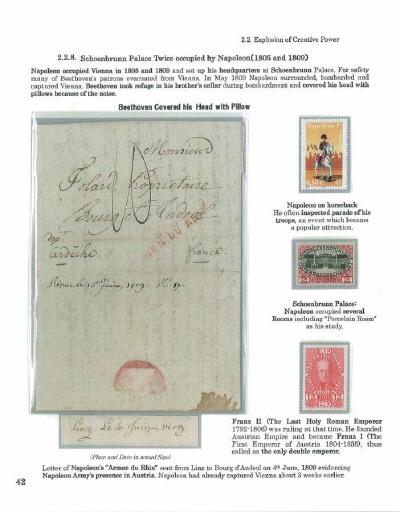 2.2. Explosion of Creative Power
2.2.8. Schoenbrunn Palace Twice occupied by Napoleon(1805 and 1809)
Napoleon occupied Vienna in 1805 and 1809 and set up his headquarters at Schoenbrunn Palace. For safety
many of Beethoven's patrons evacuated from Vienna. In May 1809 Napoleon surrounded, bombarded and
captured Vienna. Beethoven took refuge in his brother's cellar during bombardment and covered his head with
pillows because of the noise.
Beethoven Covered his Head with Pillow
Monsieur
Folard Propriétaire
Bourg St Andeol
Dept
ardèche
france
ARM DU RHIN
juin, 1809.
Linz Le 4e Juin 1809.
(Place and Date in actual Size)
Napoleon 1er
0,50€
Napoleon on horseback
He often inspected parade of his
troops, an event which became
a popular attraction.
2
2
Schoenbrunn Palace:
Napoleon occupied several
Rooms including "Porcelain Room"
as his study.
1830
12
12
Franz II (The Last Holy Roman Emperor
1792-1806) was ruling at that time. He founded
Austrian Empire and became Franz I (The
First Emperor of Austria 1804-1835), thus
called as the only double emperor.
Letter of Napoleon's "Armee du Rhin" sent from Linz to Bourg d'Andeol on 4th June, 1809 evidencing
Napoleon Army's presence in Austria. Napoleon had already captured Vienna about 3 weeks earlier.
42